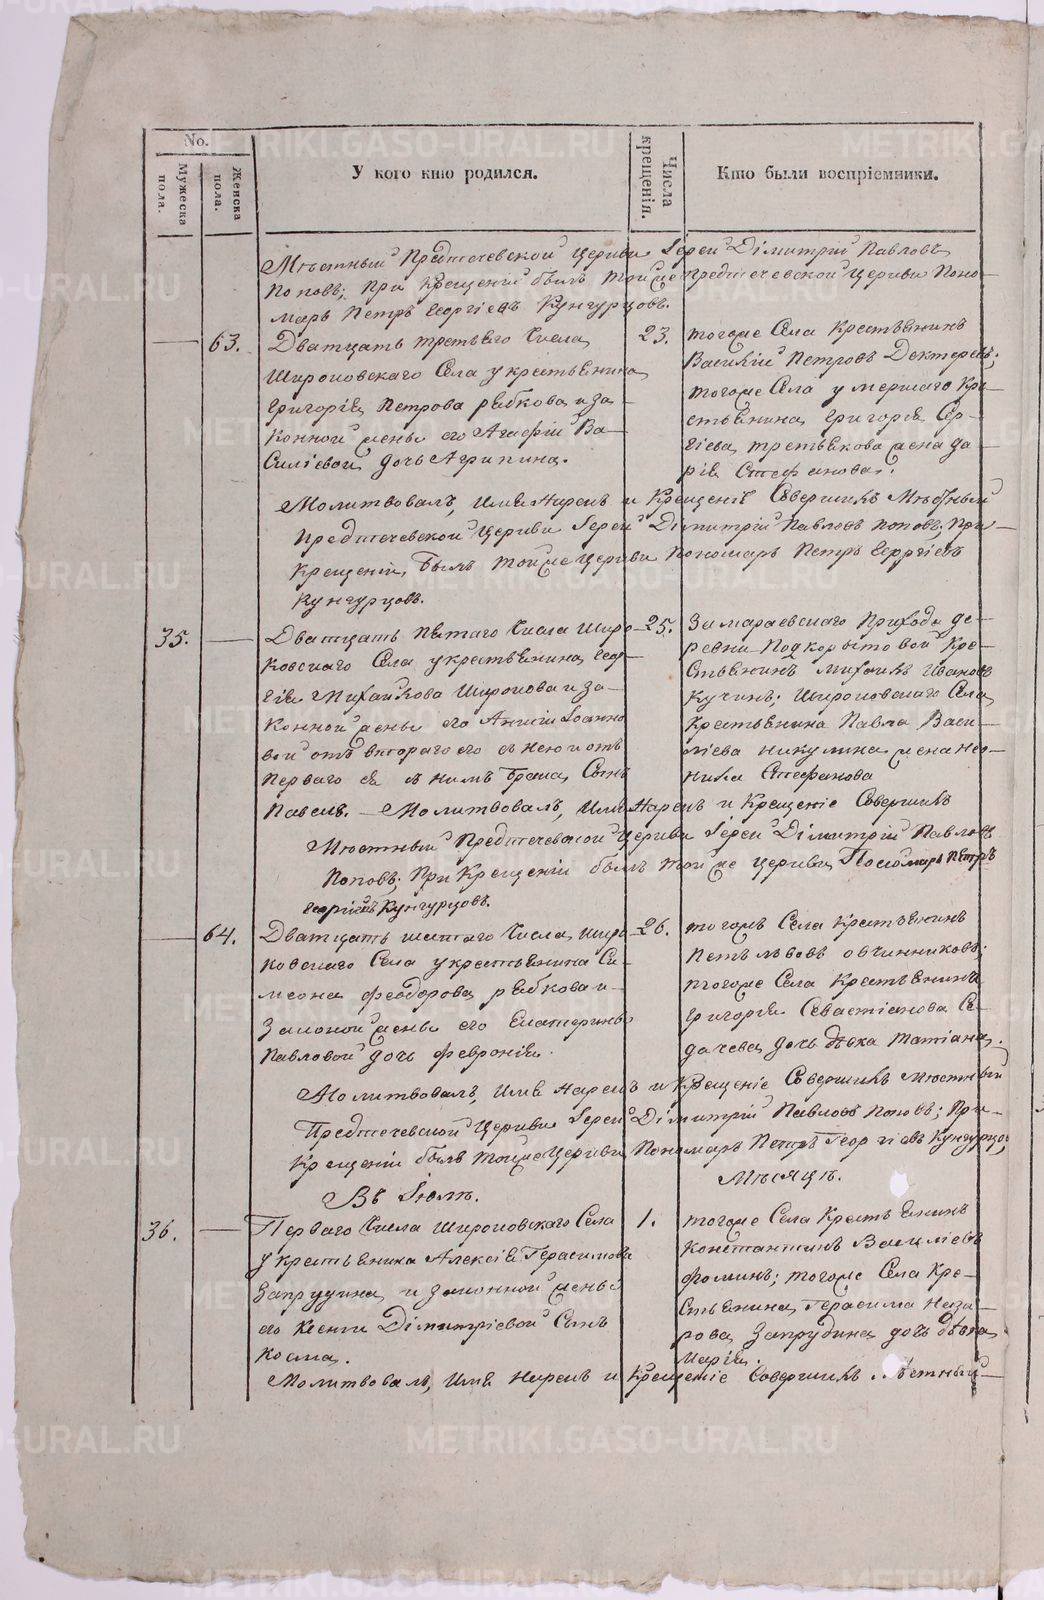 No.
Мужеска пола.
Женска пола.
У кого кто родился.
Числа крещенія.
Кто были воспріемники.
Мѣстный Предтечевской Церкви Іерей Дімитрій Павловъ
Поповъ; при Крещеніи былъ тойже предтечевской церкви Поно-
марь Петръ Георгіевъ Кунгурцовъ.
63.
Дватцать третьяго Числа
Широковскаго Села у крестьянина
Григорія Петрова рябкова и за-
конной жены его Агафіи Ва-
силіевой дочь Агрипина.
23.
тогоже Села Крестьянинъ
Василій Петровъ Дектеревъ;
тогоже Села умершаго Кре-
стьянина Григорія Сер-
гіева третьякова жена да-
рія Стефанова.
Молитвовалъ, имя нарекъ и Крещеніе Совершилъ Мѣстный
Предтечевской Церкви Іерей Дімитрій Павловъ поповъ; При
Крещеніи былъ тойже Церкви Пономарь Петръ Георгіевъ
Кунгурцовъ.
35.
Дватцать пятаго Числа Широ-
ковскаго Села у крестьянина Геор-
гія Михайлова Широкова и за-
конной жены его Анны Іоанно
вой отъ втораго его съ нею и отъ
перваго ея съ нимъ брака, Сынъ
Павелъ. — Молитвовалъ, имя нарекъ и Крещеніе Совершилъ
25.
Замараевскаго Прихода де-
ревни Подкорытовой Кре-
стьянинъ Михаилъ Ивановъ
Кучинъ; Широковскаго Села
Крестьянина Павла Васи-
лієва никулина жена нео-
нила Стефанова
Мѣстный Предтечевской Церкви Іерей Дімитрій Павловъ
Поповъ; При Крещеніи былъ тойже церкви Пономарь Петръ
Георгіевъ Кунгурцовъ.
64.
Дватцать шестаго Числа, Широ
ковскаго Села у крестьянина Си-
меона Феодорова рябкова и
Законной жены его Екатерины
Павловой дочь Февронія.
26.
тогожъ Села Крестьянинъ
Петъ львовъ овчинниковъ;
тогоже Села Крестьянина
Григорія Севастіанова Се-
дачева дочь дѣвка Татіана.
Молитвовалъ, имя нарекъ и Крещеніе Совершилъ Мѣстный
Предтечевской Церкви Іерей Дімитрій Павловъ Поповъ; При-
Крещеніи былъ тойже Церкви Пономарь Петръ Георгіевъ Кунгурцо,
Въ Іюлѣ. Мѣсяцѣ.
36.
Перваго Числа Широковскаго Села
у крестьянина Алексія Герасимова
Запрудина и законной жены
его Ксеніи Дімитріевой Сынъ
Косма.
1.
тогоже Села Крестьянинъ
Константинъ Василіевъ
Фоминъ; тогоже Села Кре-
стьянина Герасима Наза-
рова Запрудина дочь дѣвка
Марія.
Молитвовалъ, имя нарекъ и Крещеніе Совершилъ Мѣстный
METRIKI.GASO-URAL.RU